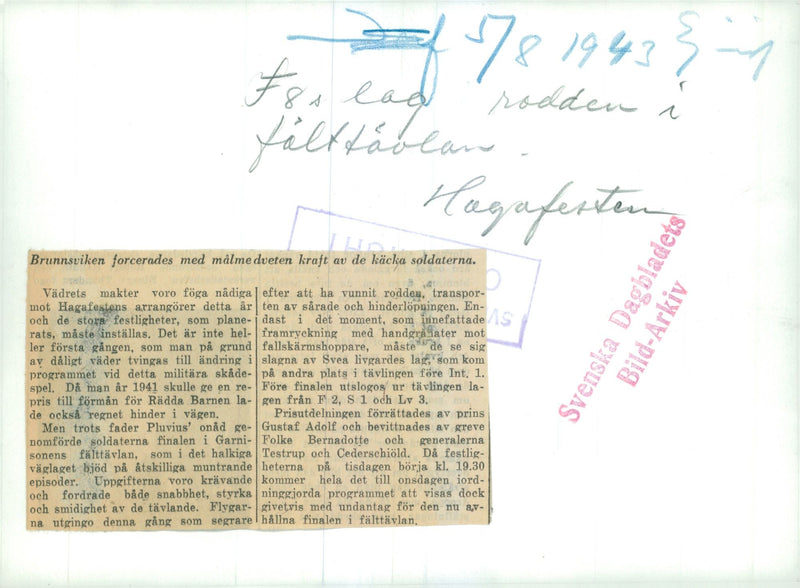 5/8 1943
F8s lag rodden i
fälttävlan.
Hagafesten
Svenska Dagbladets
Bild-Arkiv
Brunnsviken forcerades med målmedveten kraft av de käcka soldaterna.
Vädrets makter voro föga nådiga
mot Hagafestens arrangörer detta år
och de stora festligheter, som plane-
rats, måste inställas. Det är inte hel-
ler första gången, som man på grund
av dåligt väder tvingas till ändring i
programmet vid detta militära skåde-
spel. Då man år 1941 skulle ge en re-
pris till förmån för Rädda Barnen la-
de också regnet hinder i vägen.
Men trots fader Pluvius' onåd ge-
nomförde soldaterna finalen i Garni-
sonens fälttävlan, som i det halkiga
väglaget bjöd på åtskilliga muntrande
episoder. Uppgifterna voro krävande
och fordrade både snabbhet, styrka
och smidighet av de tävlande. Flygar-
na utgingo denna gång som segrare
efter att ha vunnit rodden, transpor-
ten av sårade och hinderlöpningen. En-
dast i det moment, som innefattade
framryckning med handgranater mot
fallskärmshoppare, måste de se sig
slagna av Svea livgardes lag, som kom
på andra plats i tävlingen före Int. 1.
Före finalen utslogos ur tävlingen la-
gen från F 2, S 1 och Lv 3.
Prisutdelningen förrättades av prins
Gustaf Adolf och bevittnades av greve
Folke Bernadotte och generalerna
Testrup och Cederschiöld. Då festlig-
heterna på tisdagen börja kl. 19.30
kommer hela det till onsdagen iord-
ninggjorda programmet att visas dock
givetvis med undantag för den nu av-
hållna finalen i fälttävlan.